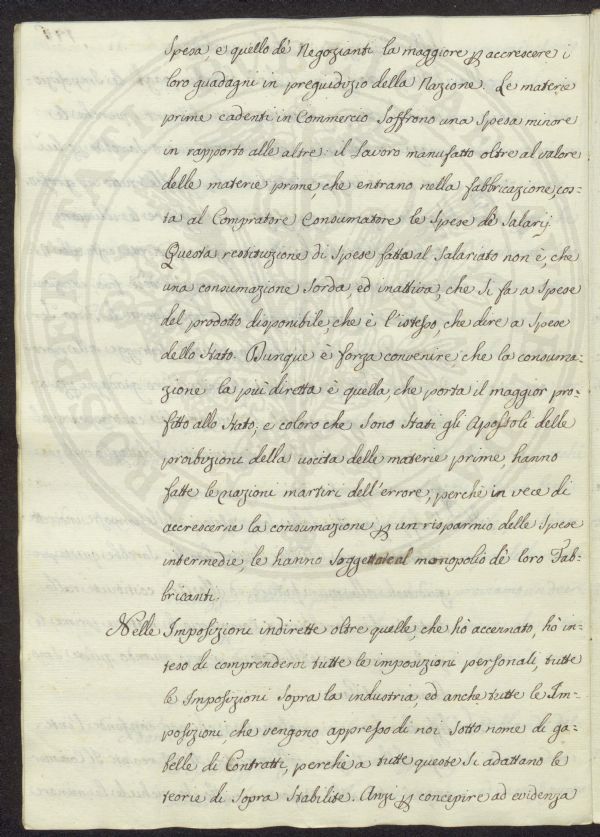 Spesa, e quello dè Negozianti la maggiore ꝑ accrescere i
loro guadagni in pregiudizio della Nazione. Le materie
prime cadenti in Commercio soffrono una Spesa minore
in rapporto alle altre: il Lavoro manufatto oltre al valore
delle materie prime, che entrano nella fabbricazione, cos=
ta al Compratore Consumatore le Spese dè Salarij
Questa restituzione di Spese fatta al Salariato non è, che
una consumazione Sorda, ed inattiva, che Si fa a Spese
del prodotto disponibile, che è l'istesso, che dire a Spese
dello Stato. Dunque è forza convenire, che la consuma=
zione la più diretta è quella, che porta il maggior pro=
fitto allo Stato; e coloro che Sono Stati gli Apostoli delle
proibizioni della uscita delle materie prime, hanno
fatte le nazioni martiri dell'errore, perchè in vece di
accrescerne la consumazione ꝑ un risparmio delle Spese
intermedie, le hanno Soggettate al monopolio dè loro Fab=
bricanti.
Nelle Imposizioni indirette oltre quelle, che hò accennato, hò in=
teso di comprendervi tutte le imposizioni personali, tutte
le Imposizioni Sopra la industria, ed anche tutte le Im=
posizioni che vengono appresso di noi Sotto nome di ga=
belle di Contratti, perchè a tutte queste Si adattano le
teorie di Sopra Stabilite. Anzi ꝑ concepire ad evidenza